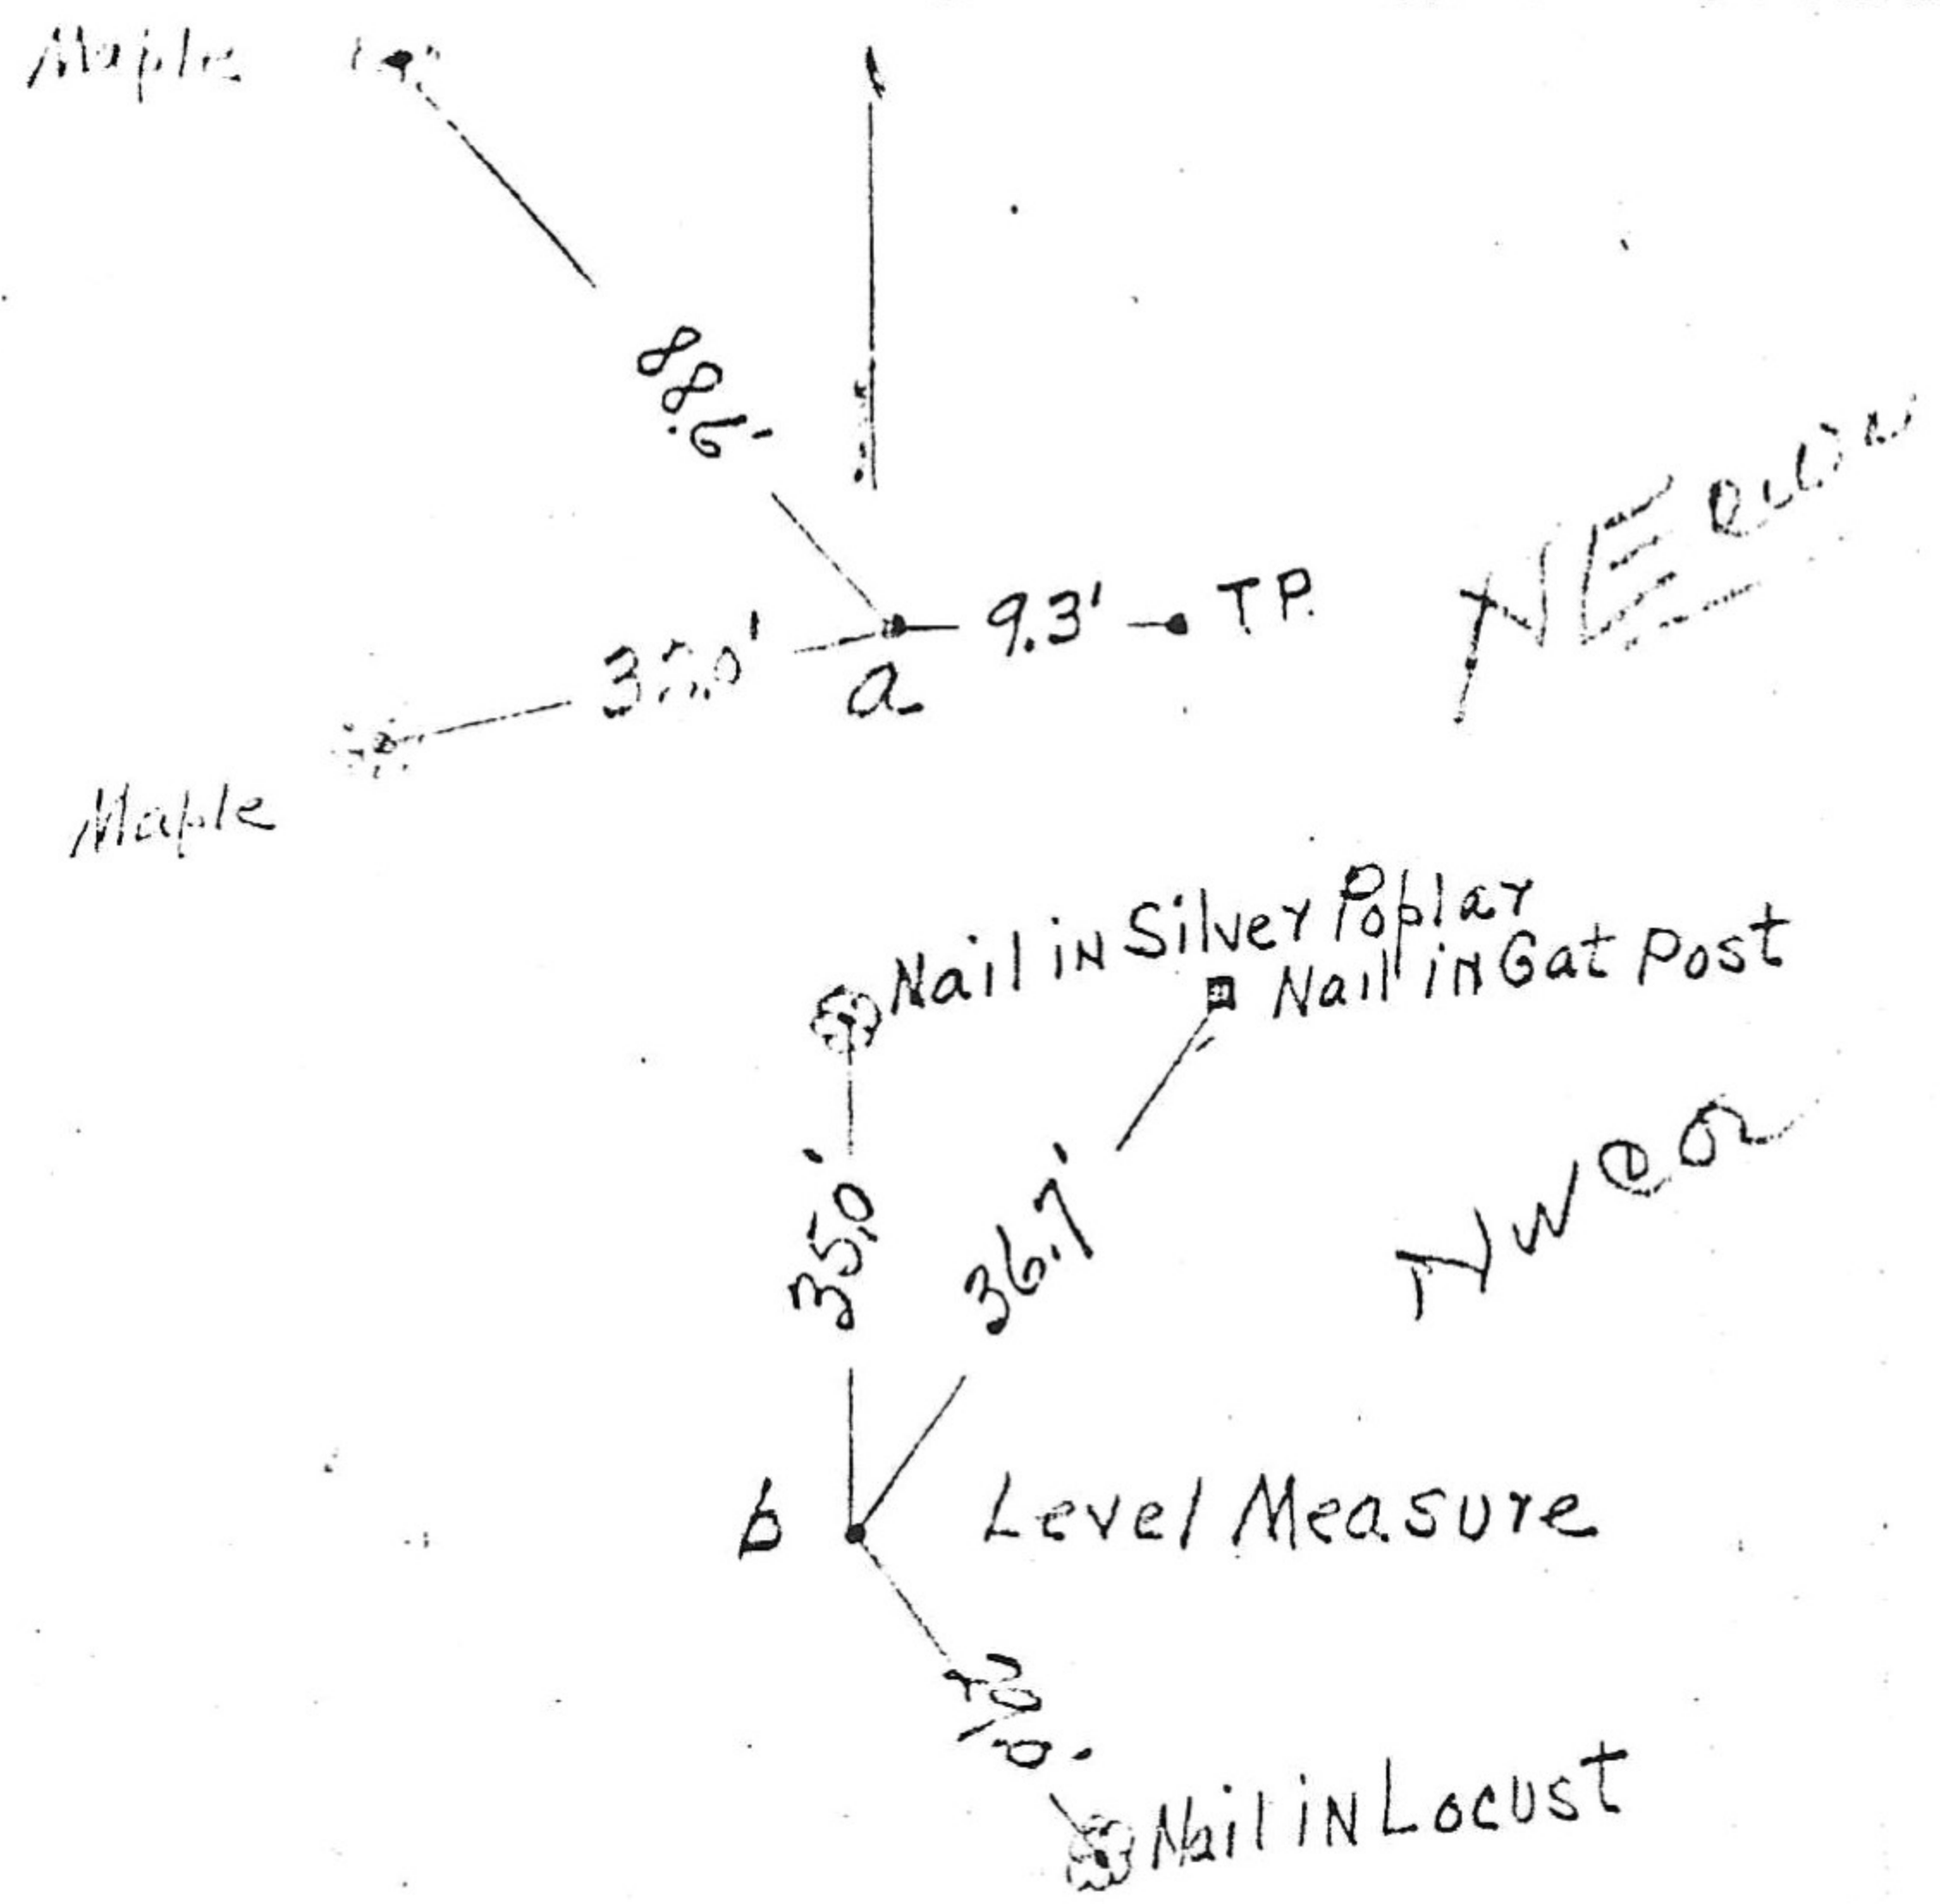 Maple
88.6'
NE
9.3'
T.P.
a
Maple
Nail in Silver Poplar
Nail in Gat Post
35.0'
36.7'
NW Cor
b
Level Measure
Nail in Locust